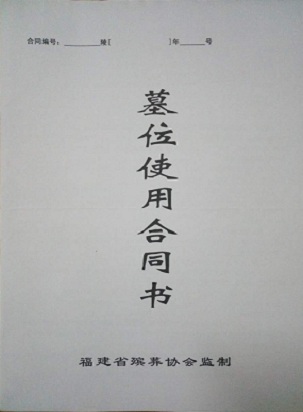 合同编号：______殓[ ]年____号
墓位使用合同书
福建省殡葬协会监制